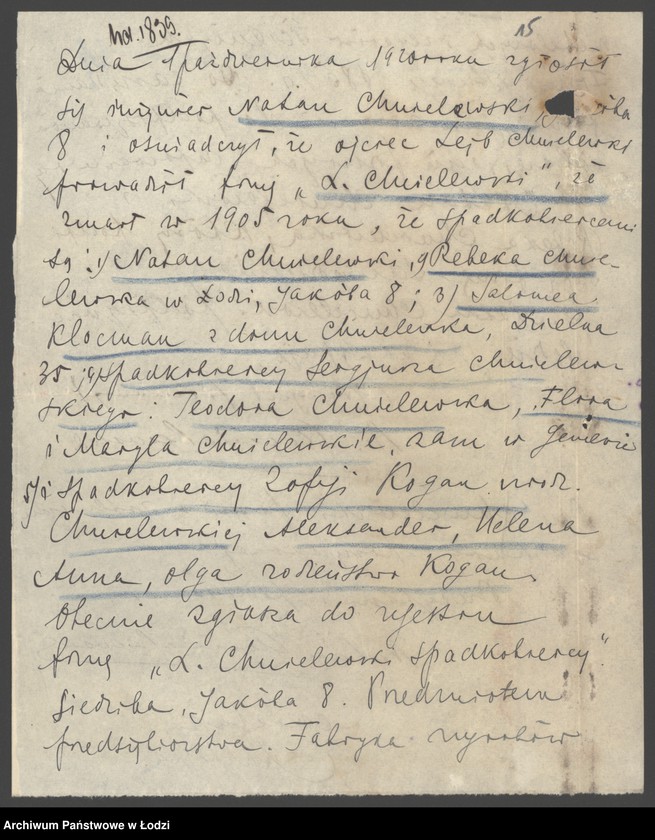 15
Dnia 1 października 1920 roku zgłosił
się inżynier Natan Chmielewski
8 i oświadczył, że ojciec Lejb Chmielewski
prowadził firmę „L. Chmielewski", że
zmarł w 1905 roku, że spadkobiercami
są: 1) Natan Chmielewski, 2) Rebeka Chmie-
lewska w Łodzi, Jakóba 8; 3) Salomea
Klocman z domu Chmielewska, Dzielna
35, 4) spadkobiercy Sergjusza Chmielew-
skiego: Teodora Chmielewska, Flora
i Maryla Chmielewskie, zam w Genewie
5) i spadkobiercy Zofji Kogan urodz.
Chmielewskiej Aleksander, Helena
Anna, Olga rodzeństwo Kogan.
Obecnie zgłasza do rejestru
firmę „L. Chmielewski spadkobiercy".
Siedziba, Jakóba 8. Przedmiotem
przedsiębiorstwa. Fabryka wyrobów
Archiwum Państwowe w Łodzi